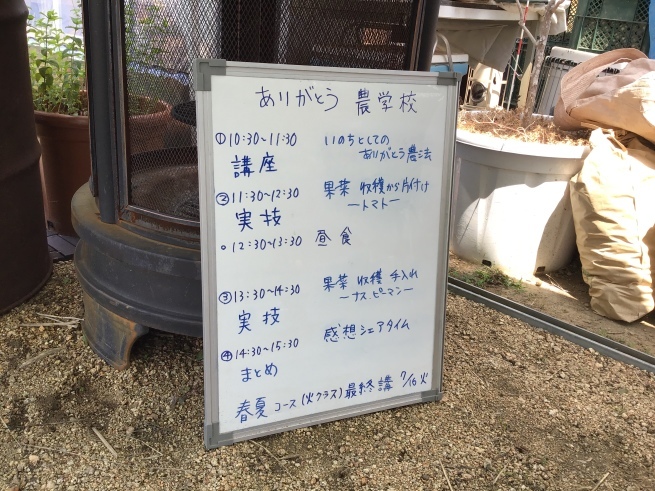 ありがとう 農学校
①10:30~11:30 いのちとしての
講座 ありがとう農法
②11:30~12:30 果菜 収穫から片付け
実技 ートマトー
○12:30~13:30 昼食
③13:30~14:30 果菜 収穫 手入れ
実技 ーナス.ピーマンー
④14:30~15:30 感想シェアタイム
まとめ
春夏コース(火クラス)最終講 7/16火